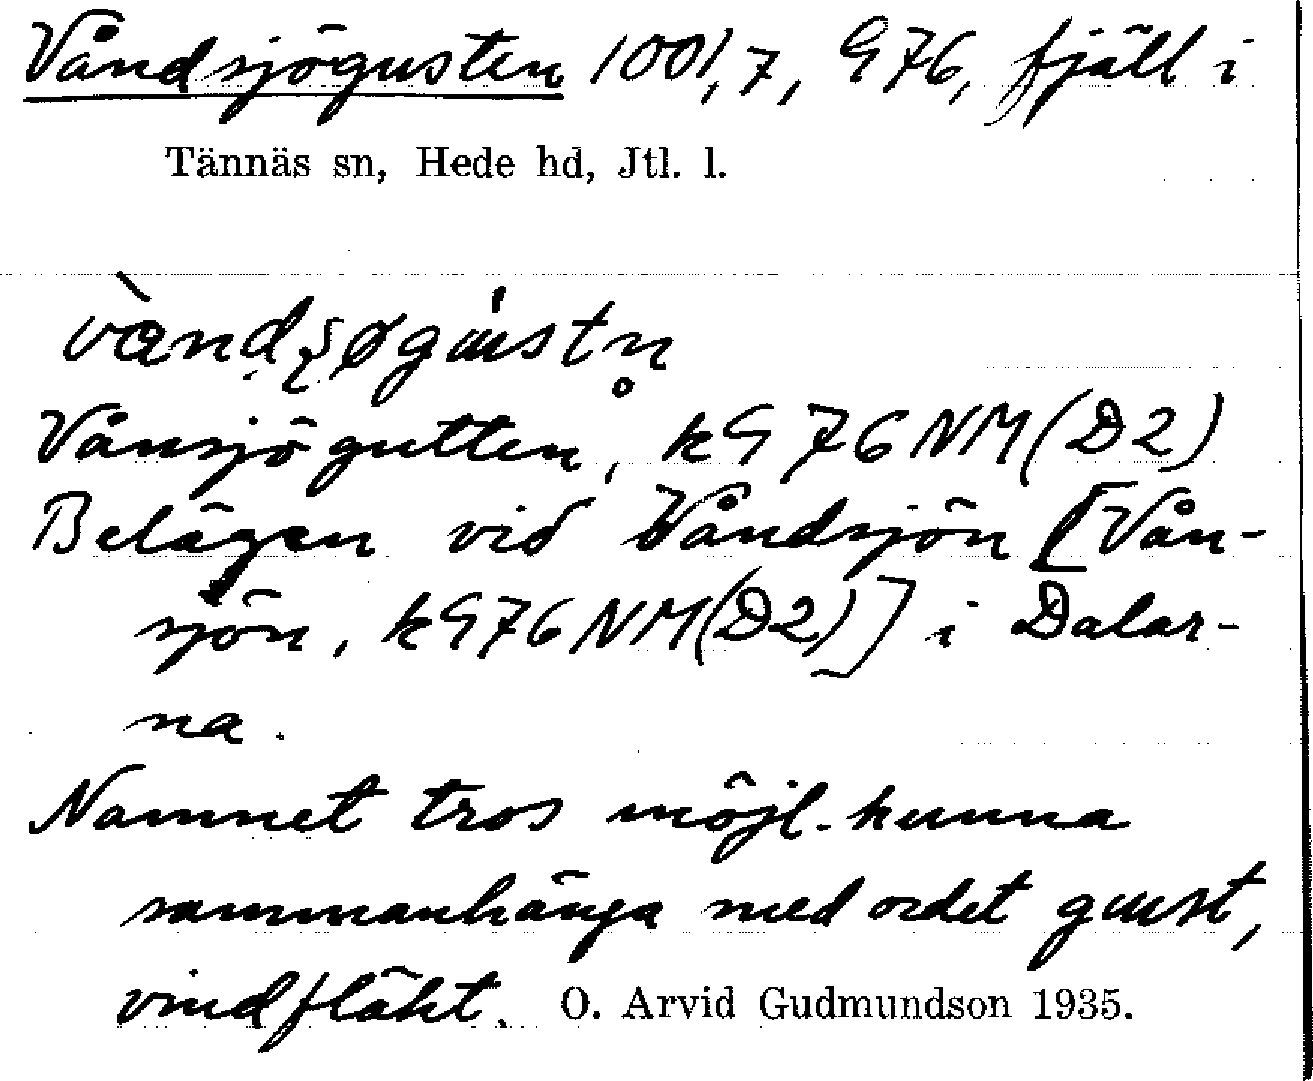 Våndsjögusten 1001,7, G76, fjäll i
Tännäs sn, Hede hd, Jtl. l.
Vånsjögutten, kG76NM(D2)
Belägen vid Våndsjön [Vån-
sjön, kG76NM(D2)] i Dalar-
na.
Namnet tros möjl. kunna
sammanhänga med ordet gust,
vindfläkt. O. Arvid Gudmundson 1935.